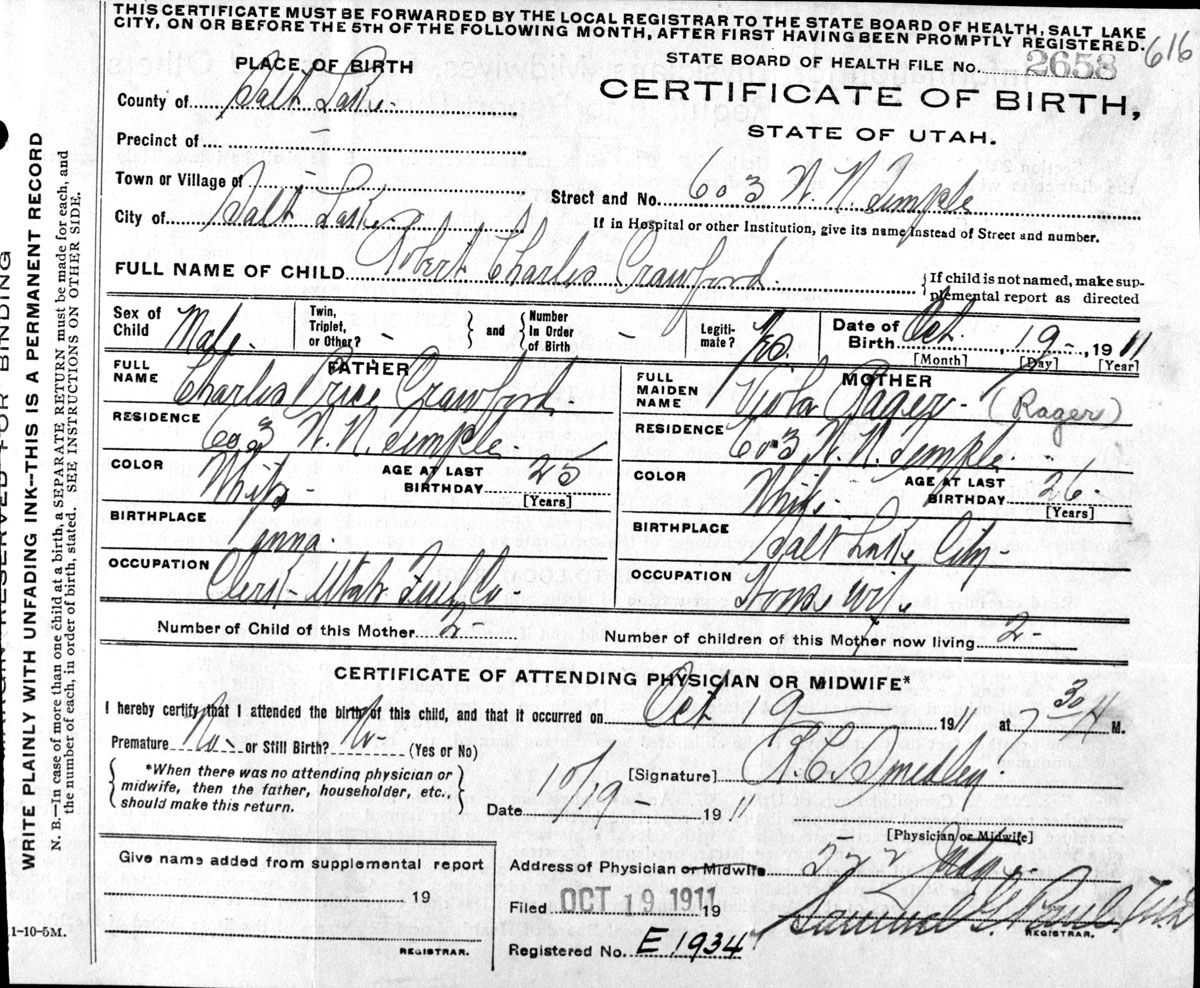 THIS CERTIFICATE MUST BE FORWARDED BY THE LOCAL REGISTRAR TO THE STATE BOARD OF HEALTH, SALT LAKE
CITY, ON OR BEFORE THE 5TH OF THE FOLLOWING MONTH, AFTER FIRST HAVING BEEN PROMPTLY REGISTERED.
616
PLACE OF BIRTH
STATE BOARD OF HEALTH FILE No. 2658
County of Salt Lake
CERTIFICATE OF BIRTH,
STATE OF UTAH.
Precinct of —
Town or Village of —
Street and No. 603 W. N. Temple
City of Salt Lake
If in Hospital or other Institution, give its name instead of Street and number.
FULL NAME OF CHILD Robert Charles Crawford
{If child is not named, make sup-
plemental report as directed
Sex of Child Male
Twin, Triplet, or Other? -
} and { Number In Order of Birth -
Legiti-mate? Yes.
Date of Birth Oct. 19 - 1911
[Month] [Day] [Year]
FATHER
FULL NAME Charles Price Crawford
RESIDENCE 603 W. N. Temple
COLOR White
AGE AT LAST BIRTHDAY 25
[Years]
BIRTHPLACE
OCCUPATION Clerk - Utah
MOTHER
FULL MAIDEN NAME Viola Rager - (Rager)
RESIDENCE 603 W. N. Temple
COLOR White
AGE AT LAST BIRTHDAY 26
[Years]
BIRTHPLACE Salt Lake City
OCCUPATION Housewife
Number of Child of this Mother 2 -
Number of children of this Mother now living 2 -
CERTIFICATE OF ATTENDING PHYSICIAN OR MIDWIFE*
I hereby certify that I attended the birth of this child, and that it occurred on Oct 19 1911 at 7 30 A M.
Premature No - or Still Birth? No - (Yes or No)
{ *When there was no attending physician or
midwife, then the father, householder, etc.,
should make this return. }
[Signature] R. C. Smedley
Date 10/19 1911
[Physician or Midwife]
Give name added from supplemental report
19
REGISTRAR.
Address of Physician or Midwife 222 Judge
Filed OCT 19 1911 19
REGISTRAR.
Registered No. E 1934
MARGIN RESERVED FOR BINDING
WRITE PLAINLY WITH UNFADING INK--THIS IS A PERMANENT RECORD
N. B.—In case of more than one child at a birth, a SEPARATE RETURN must be made for each, and
the number of each, in order of birth, stated. SEE INSTRUCTIONS ON OTHER SIDE.
11-10-5M.